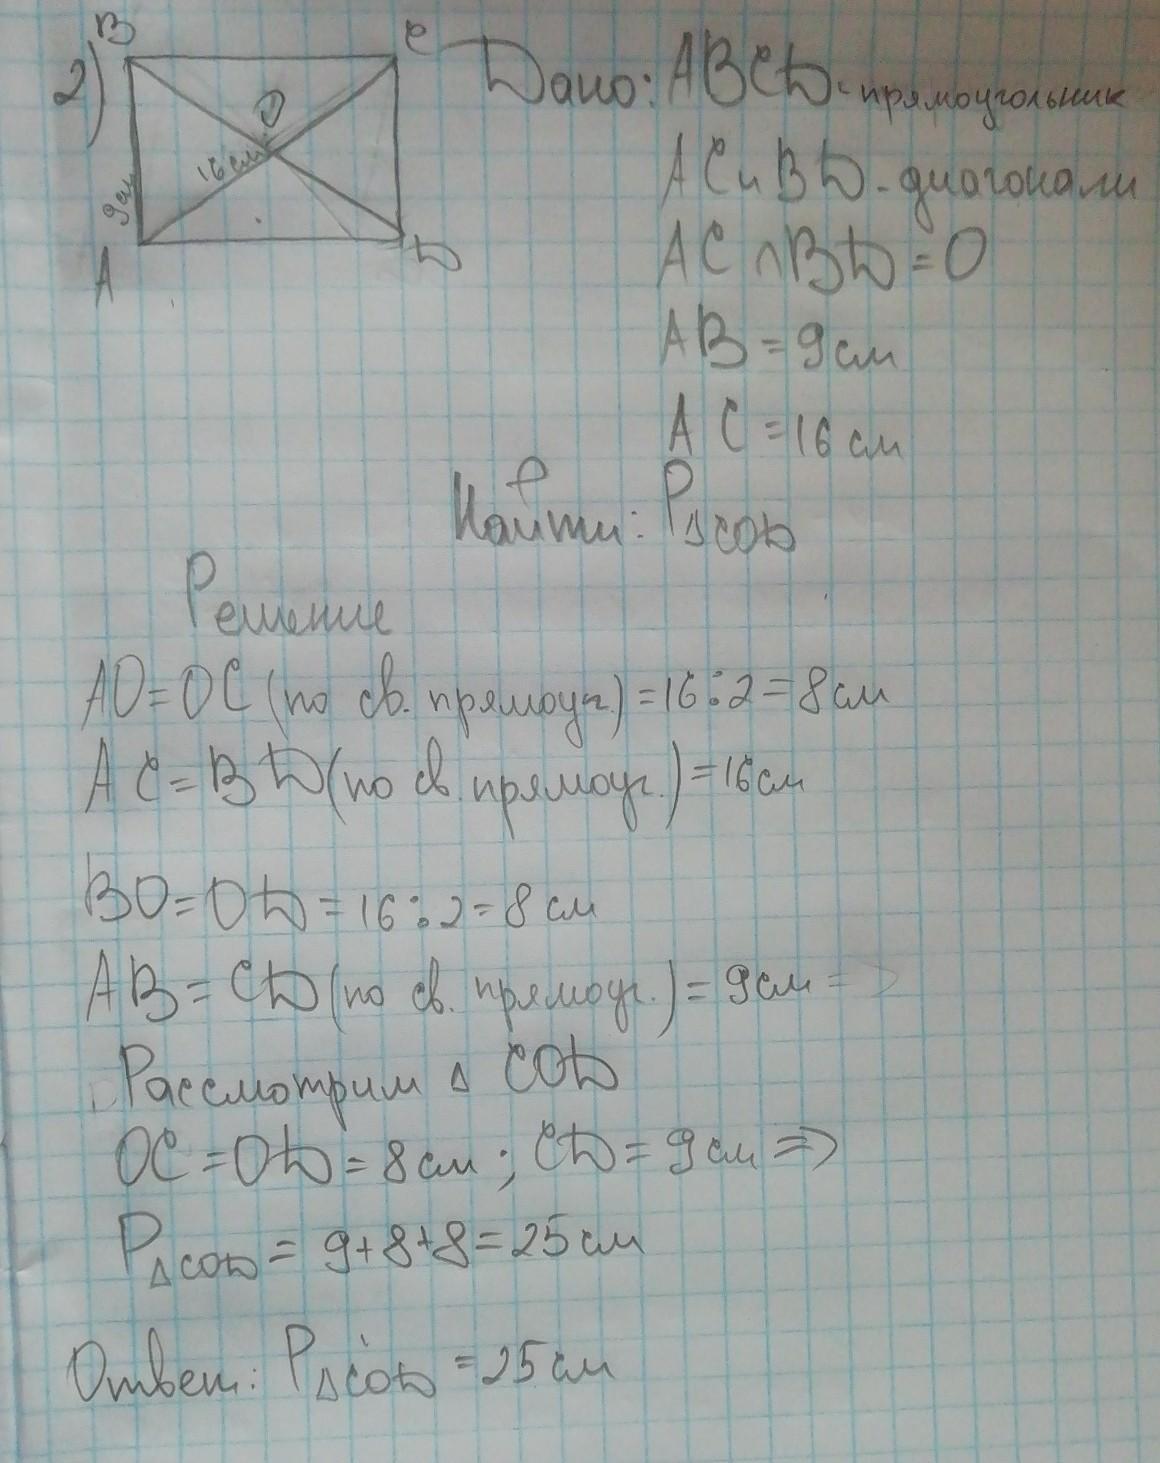 2)
B
C
O
16 см
9 см
A
D
Дано: ABCD - прямоугольник
AC и BD - диагонали
AC ∩ BD = O
AB = 9 см
AC = 16 см
Найти: P△COD
Решение
AO = OC (по св. прямоуг.) = 16 : 2 = 8 см
AC = BD (по св. прямоуг.) = 16 см
BO = OD = 16 : 2 = 8 см
AB = CD (по св. прямоуг.) = 9 см =>
Рассмотрим △ COD
OC = OD = 8 см ; CD = 9 см =>
P△COD = 9 + 8 + 8 = 25 см
Ответ: P△COD = 25 см